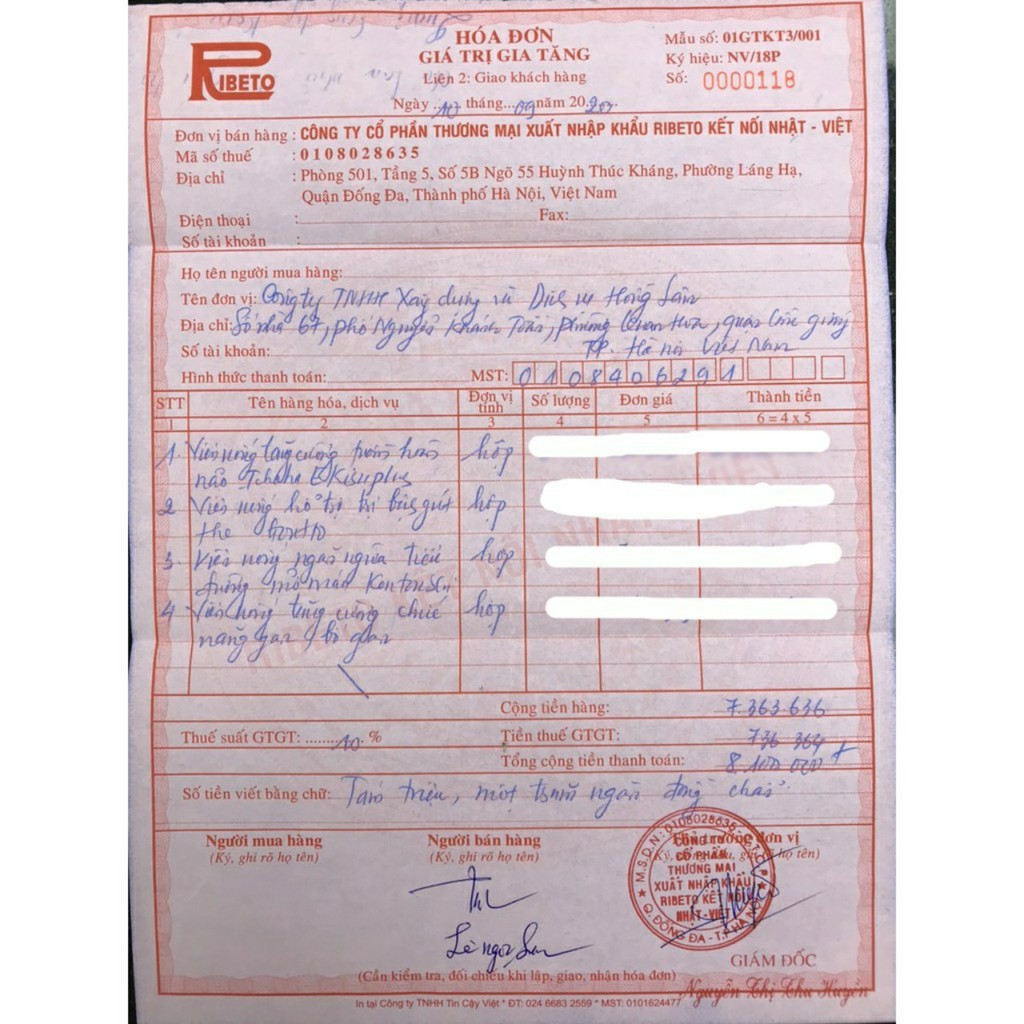 RIBETO
HÓA ĐƠN
GIÁ TRỊ GIA TĂNG
Liên 2: Giao khách hàng
Mẫu số: 01GTKT3/001
Ký hiệu: NV/18P
Số: 0000118
Ngày 10 tháng 09 năm 2020
Đơn vị bán hàng : CÔNG TY CỔ PHẦN THƯƠNG MẠI XUẤT NHẬP KHẨU RIBETO KẾT NỐI NHẬT - VIỆT
Mã số thuế : 0108028635
Địa chỉ : Phòng 501, Tầng 5, Số 5B Ngõ 55 Huỳnh Thúc Kháng, Phường Láng Hạ,
Quận Đống Đa, Thành phố Hà Nội, Việt Nam
Điện thoại : Fax:
Số tài khoản :
Họ tên người mua hàng:
Tên đơn vị: Công ty TNHH Xây dựng và Dịch vụ Hồng Sâm
Địa chỉ: Số nhà 67, phố Nguyễn Khánh Toàn, phường Quan Hoa, quận Cầu giấy
Số tài khoản: TP. Hà Nội Việt Nam
Hình thức thanh toán: MST: 0108406291
STT Tên hàng hóa, dịch vụ Đơn vị tính Số lượng Đơn giá Thành tiền
1 2 3 4 5 6 = 4 x 5
1. Viên uống tăng cường tuần hoàn hộp
não
2 Viên uống hỗ trợ trị bệnh gút hộp
the
3. Viên uống ngăn ngừa tiểu hộp
đường mỡ máu
4 Viên uống tăng cường chức hộp
năng gan, bổ gan
Cộng tiền hàng: 7.363.636
Thuế suất GTGT: 10 % Tiền thuế GTGT: 736 364
Tổng cộng tiền thanh toán: 8.100 000 đ
Số tiền viết bằng chữ: Tám triệu, một trăm ngàn đồng chẵn
Người mua hàng Người bán hàng Thủ trưởng đơn vị
(Ký, ghi rõ họ tên) (Ký, ghi rõ họ tên) (Ký, đóng dấu, ghi rõ họ tên)
M.S.D.N: 0108028635 - C.T.C.P
CÔNG TY
CỔ PHẦN
THƯƠNG MẠI
XUẤT NHẬP KHẨU
RIBETO KẾT NỐI
NHẬT-VIỆT
Q. ĐỐNG ĐA - T.P HÀ NỘI
GIÁM ĐỐC
Nguyễn Thị Thu Huyền
(Cần kiểm tra, đối chiếu khi lập, giao, nhận hóa đơn)
In tại Công ty TNHH Tin Cậy Việt * ĐT: 024 6683 2559 * MST: 0101624477